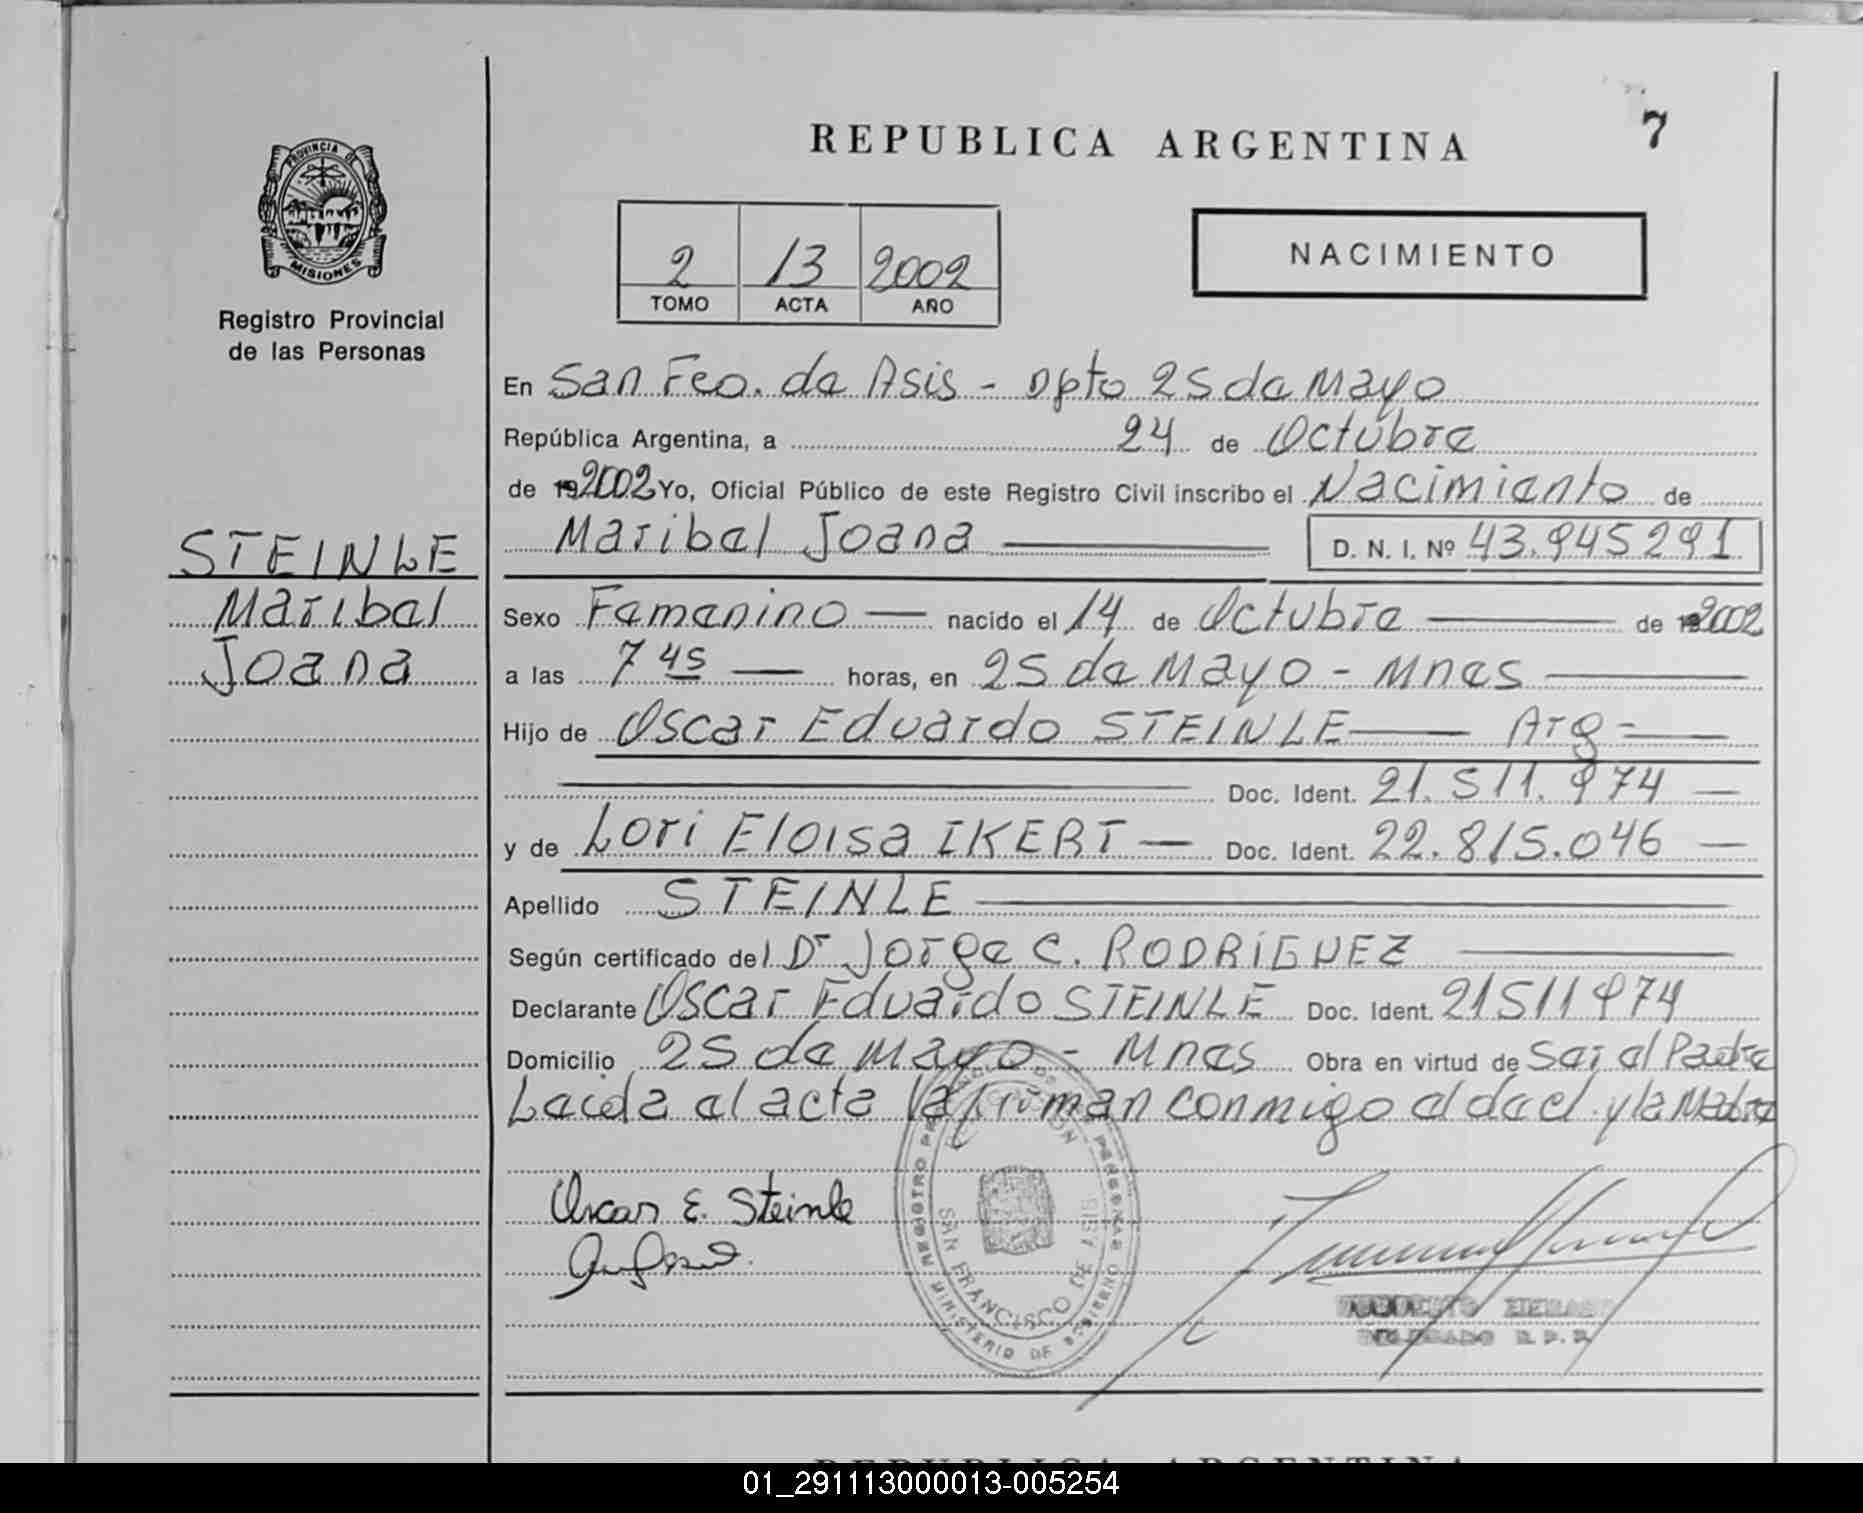 7
REPUBLICA ARGENTINA
PROVINCIA DE
MISIONES
Registro Provincial
de las Personas
2 13 2002
TOMO ACTA AÑO
NACIMIENTO
En San Fco. de Asis - Dpto 25 de Mayo
República Argentina, a 24 de Octubre
de 192002 Yo, Oficial Público de este Registro Civil inscribo el Nacimiento de
Maribel Joana D. N. I. Nº 43.945291
STEINLE
Maribel
Joana
Sexo Femenino nacido el 14 de Octubre de 192002
a las 7 45 horas, en 25 de Mayo - Mnes
Hijo de Oscar Eduardo STEINLE Arg
Doc. Ident. 21.511.974
y de Lori Eloisa IKERT Doc. Ident. 22.815.046
Apellido STEINLE
Según certificado del Dr Jorge C. RODRÍGUEZ
Declarante Oscar Eduardo STEINLE Doc. Ident. 21511974
Domicilio 25 de Mayo - Mnes Obra en virtud de Ser el Padre
Leida el acta la firman conmigo el decl. y la Madre
Oscar E. Steinle
REGISTRO PROVINCIAL DE LAS PERSONAS
MINISTERIO DE GOBIERNO
SAN FRANCISCO DE ASIS
DELEGADO R. P. P.
REPUBLICA ARGENTINA
01_291113000013-005254